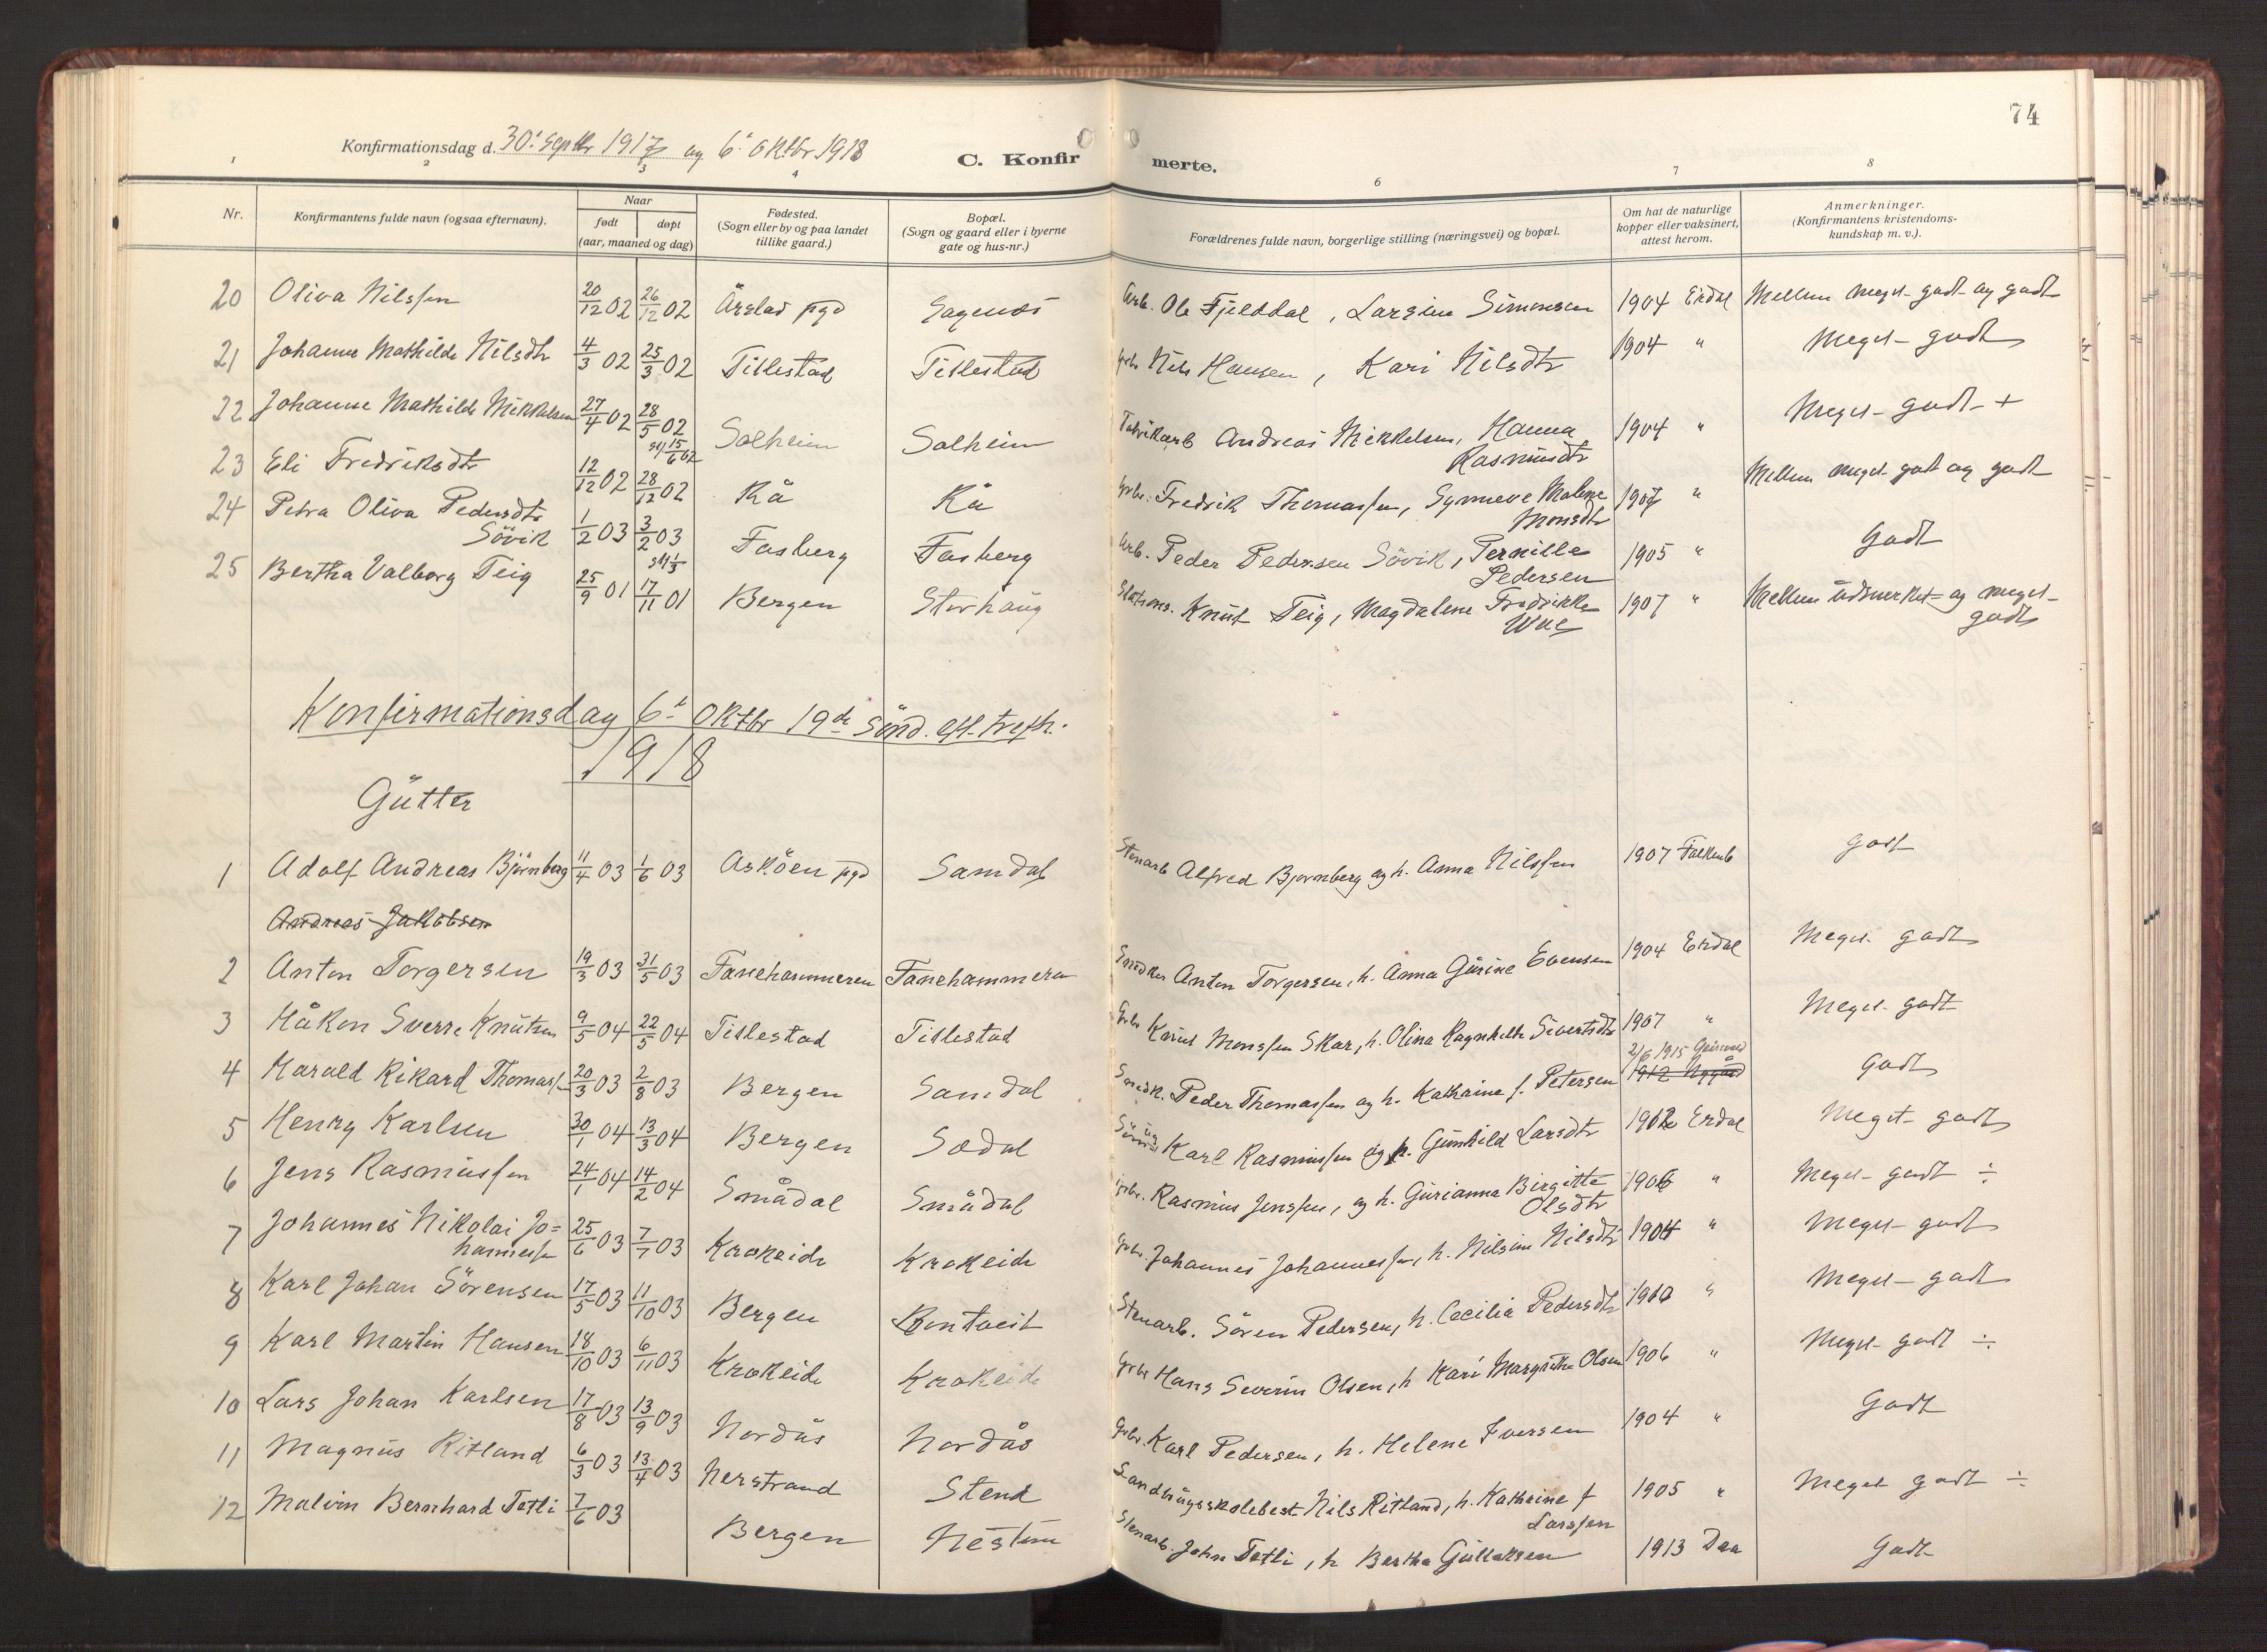 74
Konfirmationsdag d. 30. Septbr 1917 og 6. Oktbr 1918
C. Konfirmerte.
1 2 3 4 6 7 8
Nr. Konfirmantens fulde navn (ogsaa efternavn). Naar født døpt (aar, maaned og dag) Fødested. (Sogn eller by og paa landet tillike gaard.) Bopæl. (Sogn og gaard eller i byerne gate og hus-nr.) Forældrenes fulde navn, borgerlige stilling (næringsvei) og bopæl. Om hat de naturlige kopper eller vaksinert, attest herom. Anmerkninger. (Konfirmantens kristendoms- kundskap m. v.).
20 Oliva Nilssen 20/12 02 26/12 02 Årstad pgd Arb. Ole Fjelddal, Larsine Simonsen 1904 Erdal Mellem meget godt og godt
21 Johanne Mathilde Nilsdtr 4/3 02 25/3 02 Titlestad Titlestad Gbr Nils Hansen, Kari Nilsdtr 1904 " Meget godt
22 Johanne Mathilde Mikkelsen 27/4 02 28/5 02 st 15/6 02 Solheim Solheim Fabrikarb Andreas Mikkelsen, Hanna
Rasmusdtr 1904 " Meget godt +
23 Eli Fredriksdtr 12/12 02 28/12 02 Rå Rå Gbr. Fredrik Thomassen, Synneve Malene
Monsdtr 1907 " Mellem meget godt og godt
24 Petra Oliva Pedersdtr
Sövik 1/2 03 3/2 03 st 1/3 Fasberg Fasberg Arb. Peder Pedersen Sövik, Pernille
Pedersen 1905 " Godt
25 Bertha Valborg Teig 25/9 01 17/11 01 Bergen Storhaug Stations. Knut Teig, Magdalene Fredrikke
1907 " Mellem udmerket og meget
godt
Konfirmationsdag 6. Oktbr 19de Sönd. eft. trefh.
1918
Gutter
1 Adolf Andreas Björnberg 11/4 03 1/6 03 Asköen pgd Samdal Stenarb Alfred Bjornberg og h. Anna Nilssen 1907 Falkenb Godt
Andreas Jakobsen
2 Anton Torgersen 19/3 03 31/5 03 Fanehammeren Fanehammeren Snedker Anton Torgersen, h. Anna Gurine Evensen 1904 Erdal Meget godt
3 Håkon Sverre Knutsen 9/5 04 22/5 04 Titlestad Titlestad Gbr Knut Monssen Skar, h. Olina Ragnhilda Sivertsdtr 1907 " Meget godt
2/6 1915
4 Harald Rikard Thomassen 20/3 03 2/8 03 Bergen Samdal Snedk. Peder Thomassen og h. Kathrine f. Petersen 1912 Nygård Godt
5 Henry Karlsen 30/1 04 13/3 04 Bergen Sædal Karl Rasmussen og h. Gunhild Larsdtr Erdal Meget godt
6 Jens Rasmussen 24/1 04 14/2 04 Smådal Smådal Gbr. Rasmus Jenssen, og h. Gurianna Birgitte
Olsdtr 1906 " Meget godt ÷
7 Johannes Nikolai Jo=
hannessen 25/6 03 7/7 03 Krokeide Krokeide Gbr. Johannes Johannessen, h. Nilsine Nilsdtr 1904 " Meget godt
8 Karl Johan Sörensen 17/5 03 11/10 03 Bergen Rontveit Stenarb. Sören Pedersen, h. Cecilia Pedersdtr 1910 " Meget godt
9 Karl Martin Hansen 18/10 03 6/11 03 Krokeide Krokeide Gbr Hans Severin Olsen, h Kari Margrethe Olsen 1906 " Meget godt ÷
10 Lars Johan Karlsen 17/8 03 13/9 03 Nordås Nordås Gbr. Karl Pedersen, h. Helene Iversen 1904 " Godt
11 Magnus Ritland 6/3 03 13/4 03 Nerstrand Stend Landbrugsskolebest Nils Ritland, h. Kathrine f
Larssen 1905 " Meget godt ÷
12 Malvin Bernhard Tetli 7/6 03 Bergen Nestun Stenarb. John Tetli, h Bertha Gullaksen 1913 Daa Godt